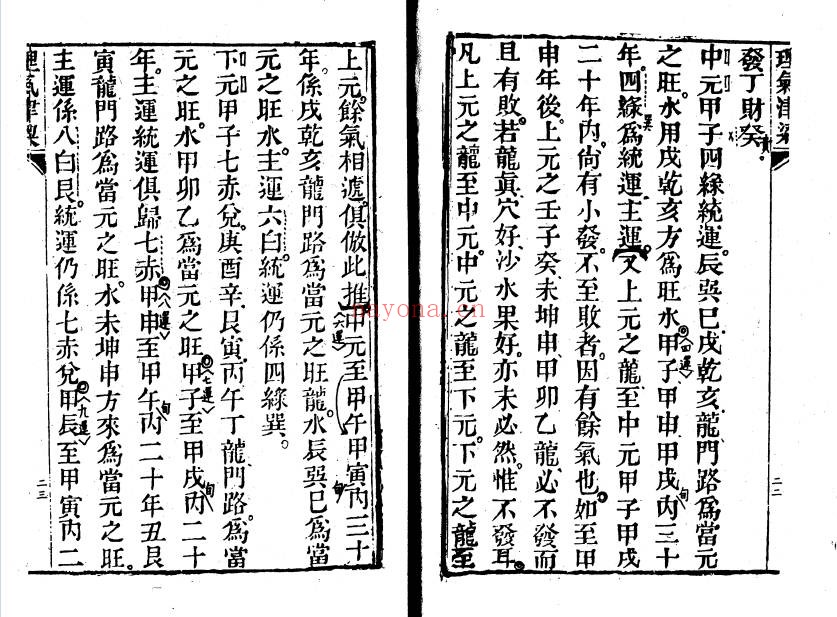 理氣津梁
發丁財癸
中元甲子四綠統運辰巽巳戌乾亥龍門路爲當元
之旺水用戌乾亥方爲旺水甲子甲申甲戌內三十
年四綠爲統運主運又上元之龍至中元甲子甲戌
二十年內尙有小發不至敗者因有餘氣也如至甲
申年後上元之壬子癸未坤申甲卯乙龍必不發而
且有敗若龍眞穴好沙水果好亦未必然惟不發耳
凡上元之龍至中元中元之龍至下元下元之龍至
二三
上元餘氣相遞俱倣此推中元至甲午甲寅內三十
年係戌乾亥龍門路爲當元之旺龍水辰巽巳爲當
元之旺水主運六白統運仍係四綠巽
下元甲子七赤兌庚酉辛艮寅丙午丁龍門路爲當
元之旺水甲卯乙爲當元之旺甲子至甲戌內二十
年主運統運俱歸七赤甲申至甲午內二十年丑艮
寅龍門路爲當元之旺水未坤申方來爲當元之旺
主運係八白艮統運仍係七赤兌甲辰至甲寅內二
理氣津梁
二三
nayona.cn